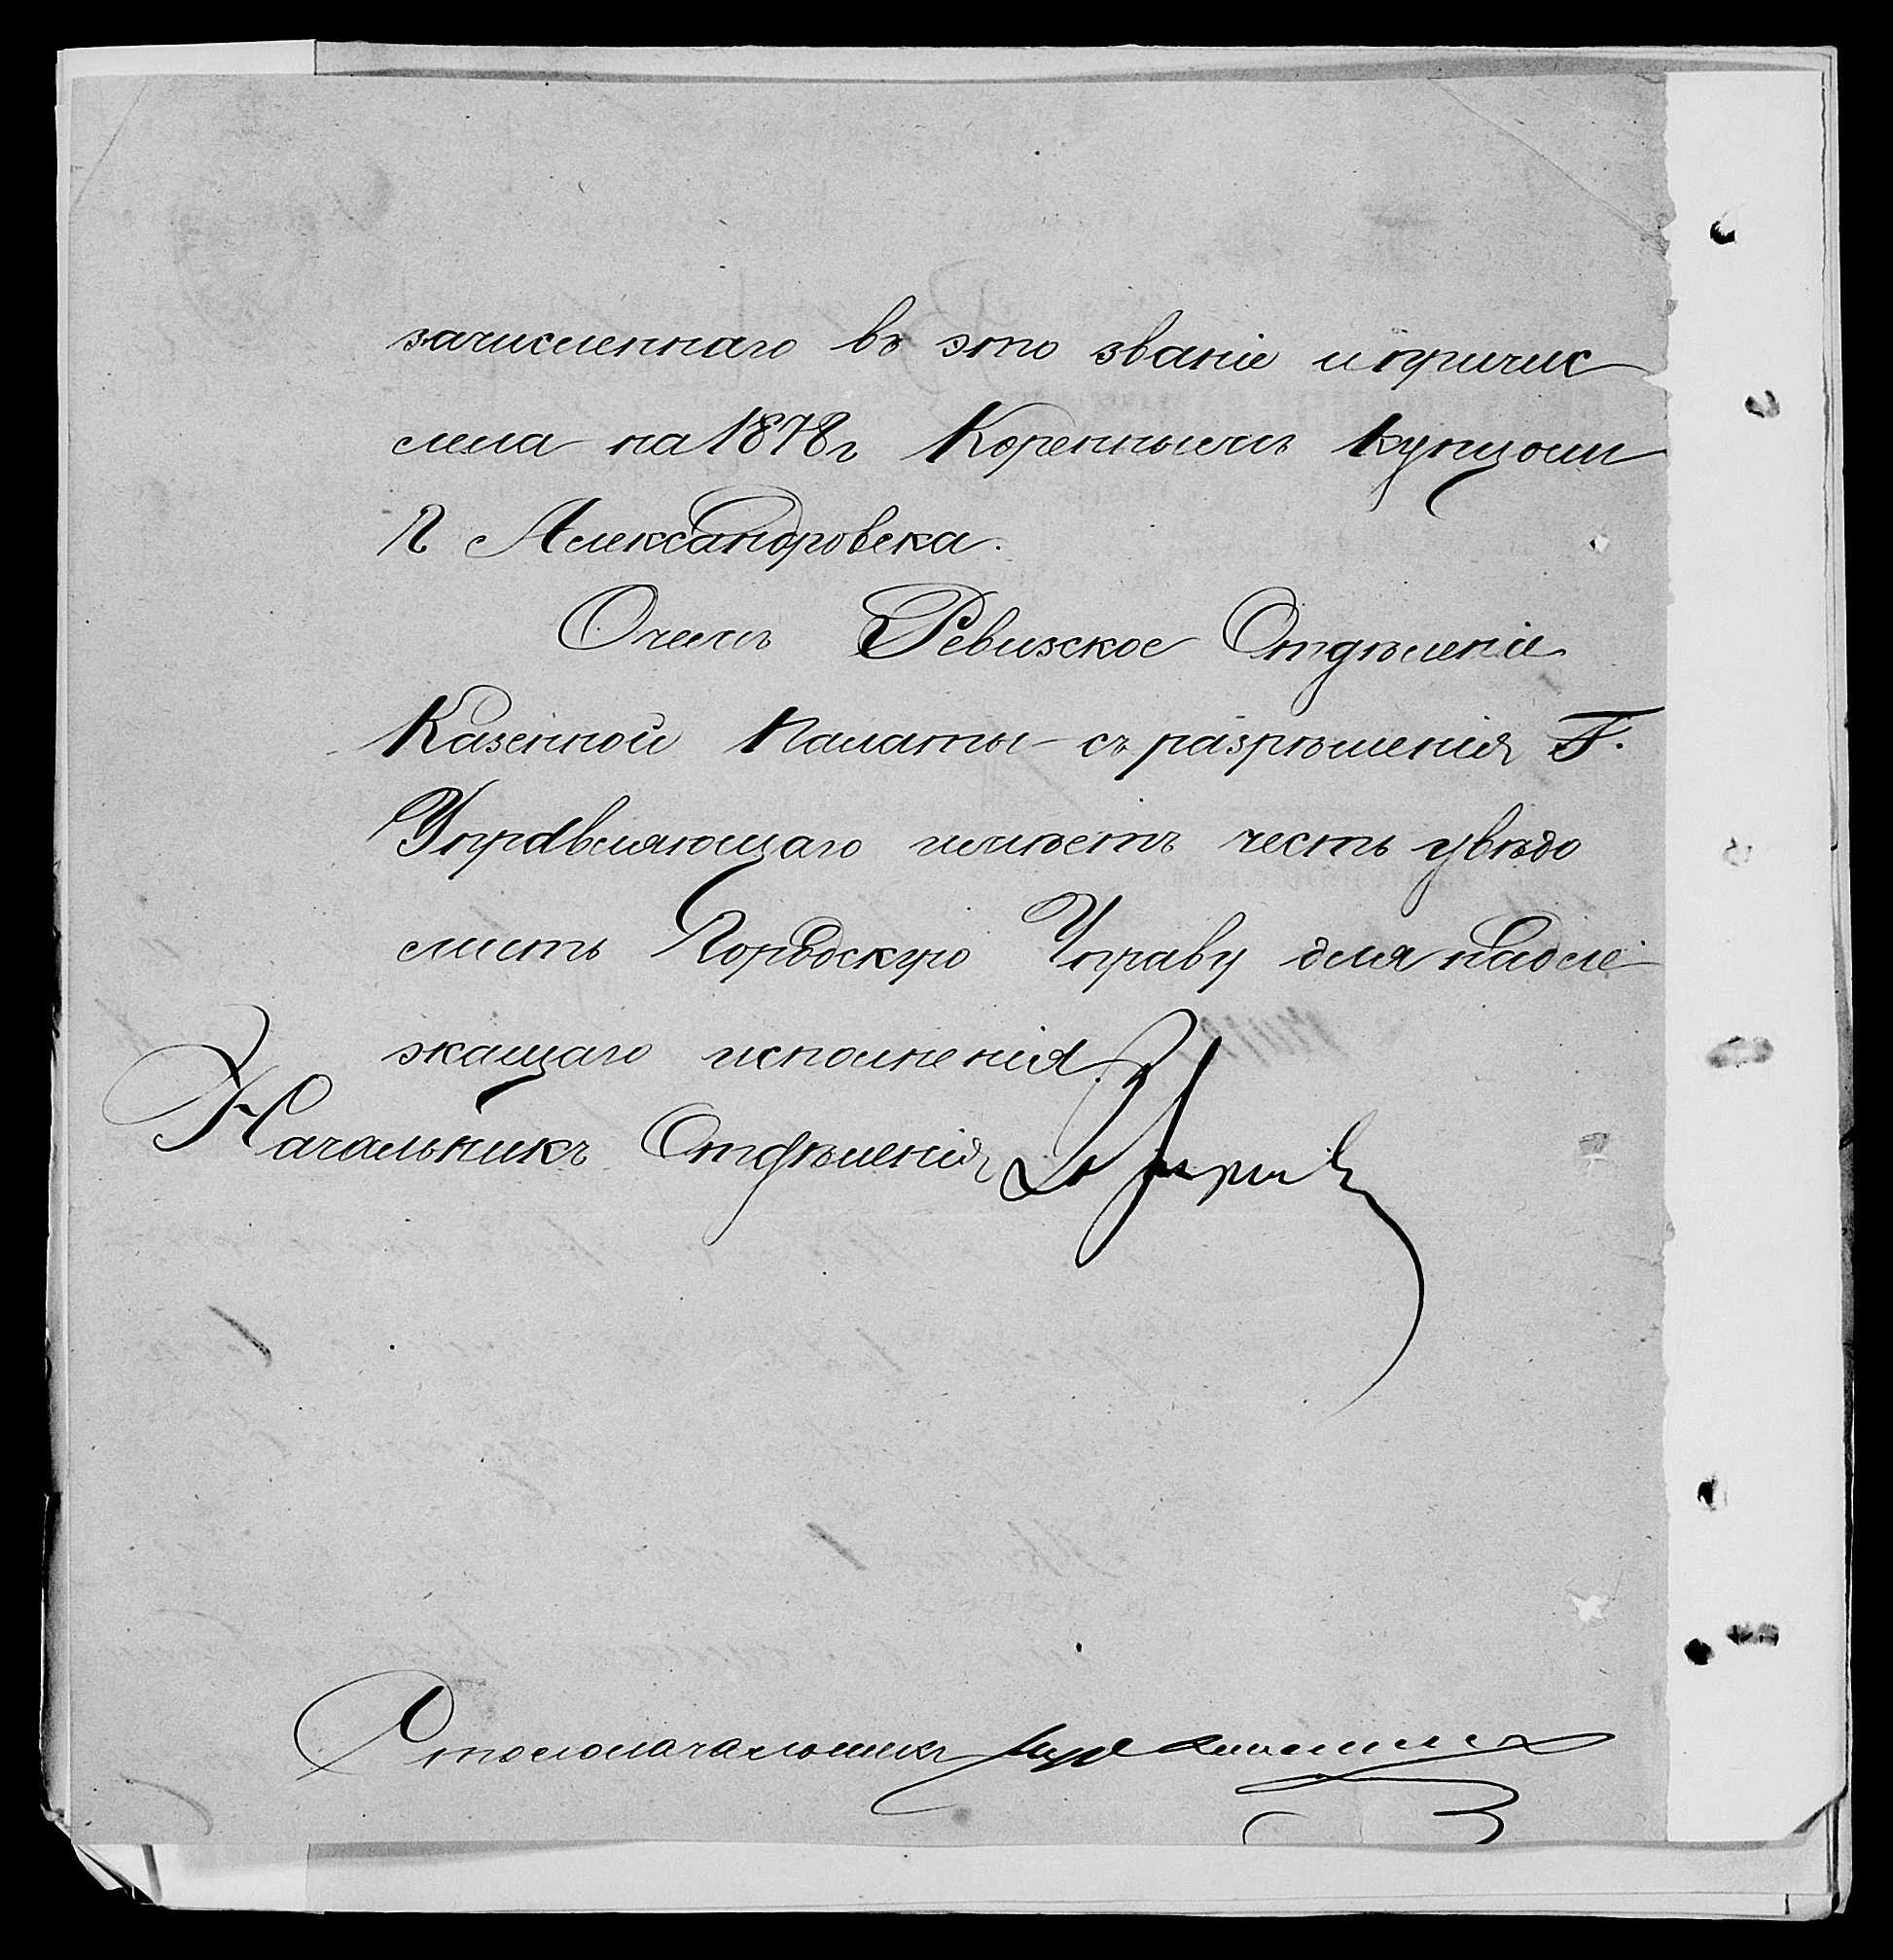 зачисленнаго въ это званіе и причис
лила на 1878 г Кореннымъ купцомъ
г Александровска.
О чемъ Ревизское Отдѣленіе
Казенной Палаты съ разрѣшенія Г.
Управляющаго имѣетъ честь увѣдо
мить Городскую Управу для надле
жащаго исполненія.
Начальникъ Отдѣленія
Столоначальникъ